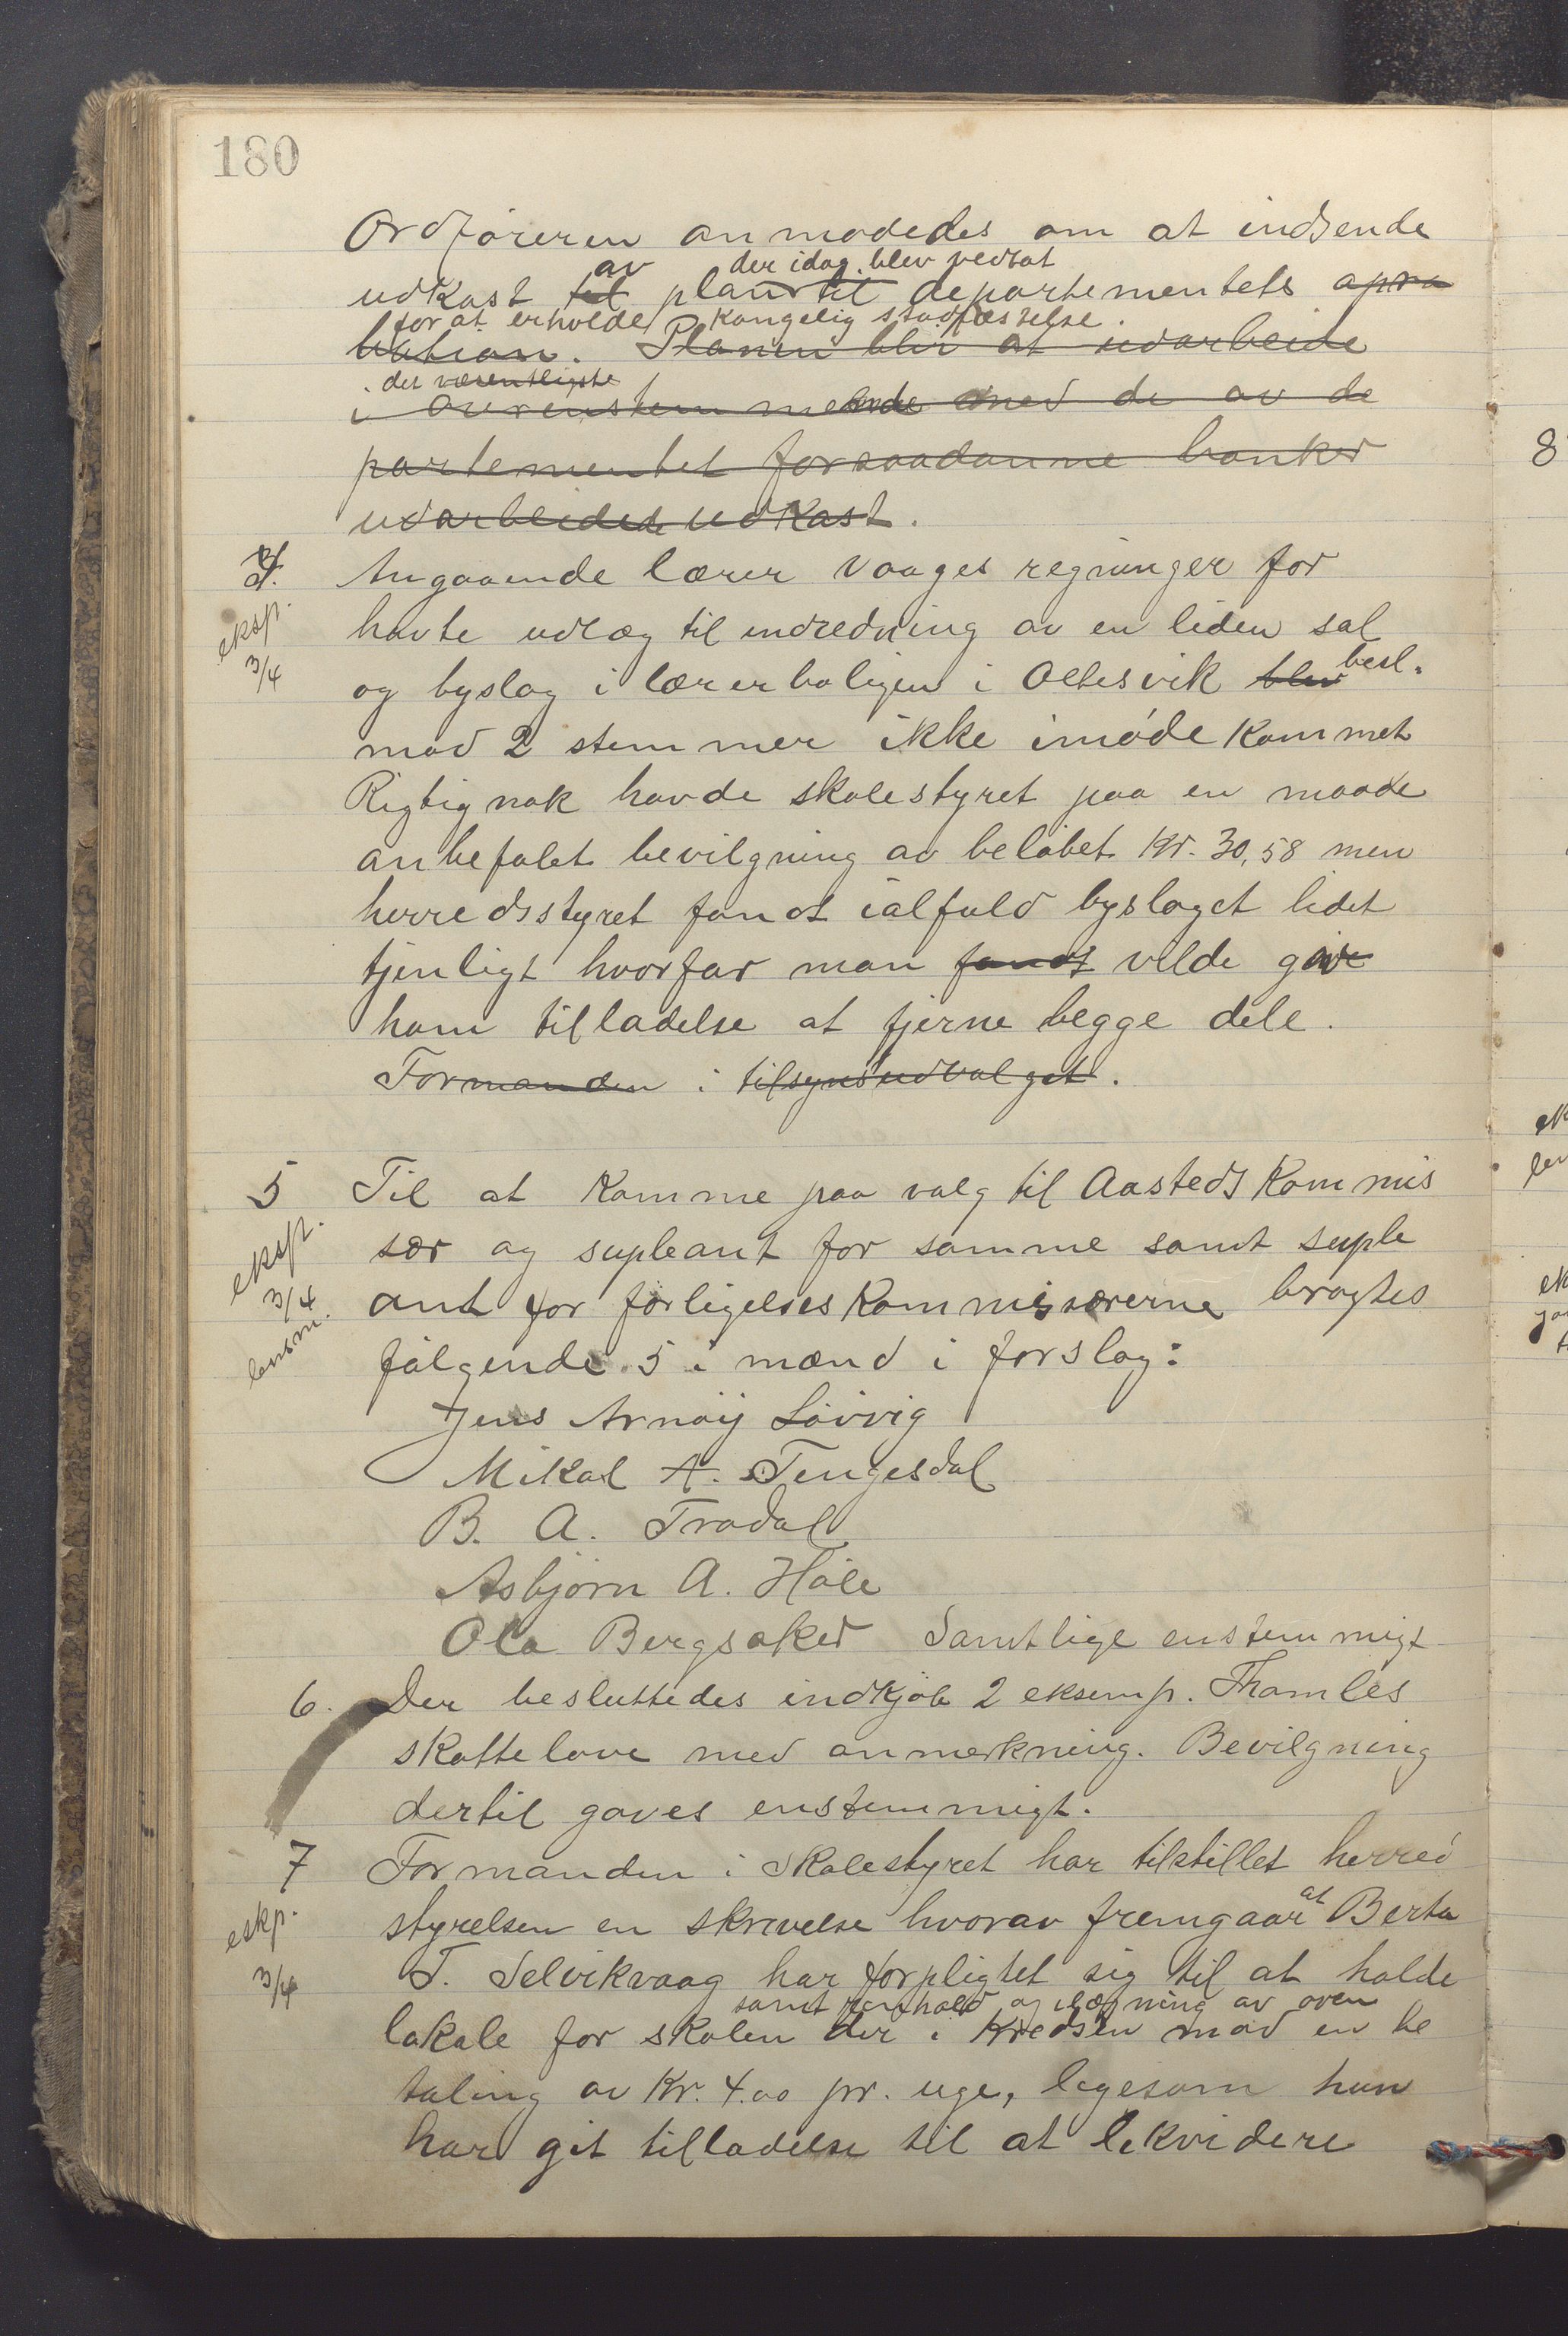 180
Ordføreren anmodedes om at indsende
av der idag blev vedtat
udkast til plan til departementets apro
for at erholde kongelig stadfæstelse.
bation. Planen blir at udarbeide
det væsentligste
i overenstemmende med de av de
partementet for saadanne banker
udarbeidede udkast.
4. Angaaende lærer Vaages regninger for
eksp. 3/4
havte udlæg til indredning av en liden sal
og byslag i lærerboligen i Oltesvik blev besl.
mod 2 stemmer ikke imødekommet
Rigtignok havde skolestyret paa en maade
anbefalet bevilgning av beløbet Kr. 30,58 men
herredsstyret fandt ialfald byslaget lidet
tjenligt hvorfor man fandt vilde give
ham tilladelse at fjerne begge dele.
Formanden i tilsynsudvalget.
5 Til at komme paa valg til Aastedskommis
eksp. 3/4 lensm.
sær og supleant for samme samt suple
ant for forligelseskommisærerne bragtes
følgende 5 mænd i forslag:
Jens Arnøy Løvvig
Mikal A. Tengesdal
B. A. Tradal
Asbjørn A. Høle
Ola Bergsaker Samtlige enstemmigt
6. Der besluttedes indkjøb 2 eksemp. Thomles
skattelove med anmerkning. Bevilgning
dertil gaves enstemmigt.
7 Formanden i skolestyret har tilstillet herred
eskp. 3/4
styrelsen en skrivelse hvorav fremgaar at Berta
T. Selvikvaag har forpligtet sig til at holde
samt renhold og ilægning av oven
lokale for skolen der i Kredsen mod en be
taling av Kr. 4.00 pr. uge, ligesom hun
har git tilladelse til at likvidere
8